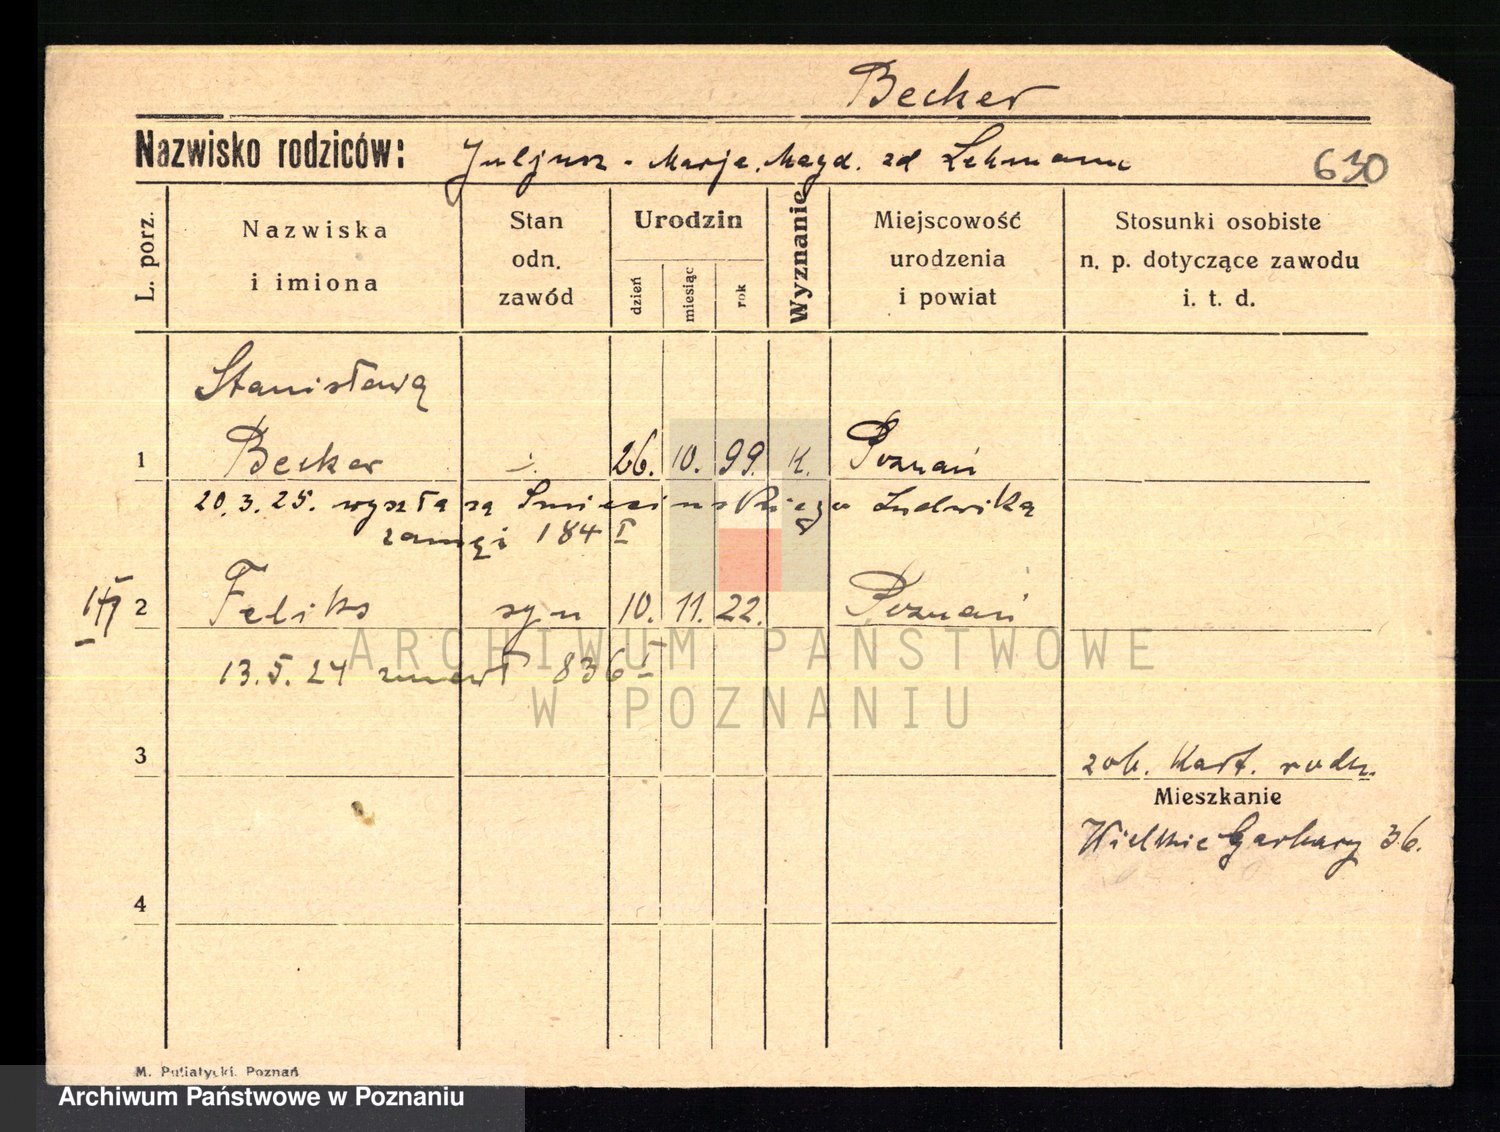 Becker
Nazwisko rodziców: Juljusz - Marja, Magd. zd Lehmann 630
L. porz.
Nazwiska
i imiona
Stan
odn.
zawód
Urodzin
dzień
miesiąc
rok
Wyznanie
Miejscowość
urodzenia
i powiat
Stosunki osobiste
n. p. dotyczące zawodu
i. t. d.
Stanisława
1 Becker 26. 10. 99. K. Poznań
20.3.25. wyszła za Ludwika
184 I
2 Feliks syn 10. 11. 22. Poznań
13.5.24 zmarł 836 I
ARCHIWUM PAŃSTWOWE
W POZNANIU
3 zob. Kart. rodz.
Mieszkanie
Wielkie Garbary 36.
4
M. Putiatycki, Poznań
Archiwum Państwowe w Poznaniu